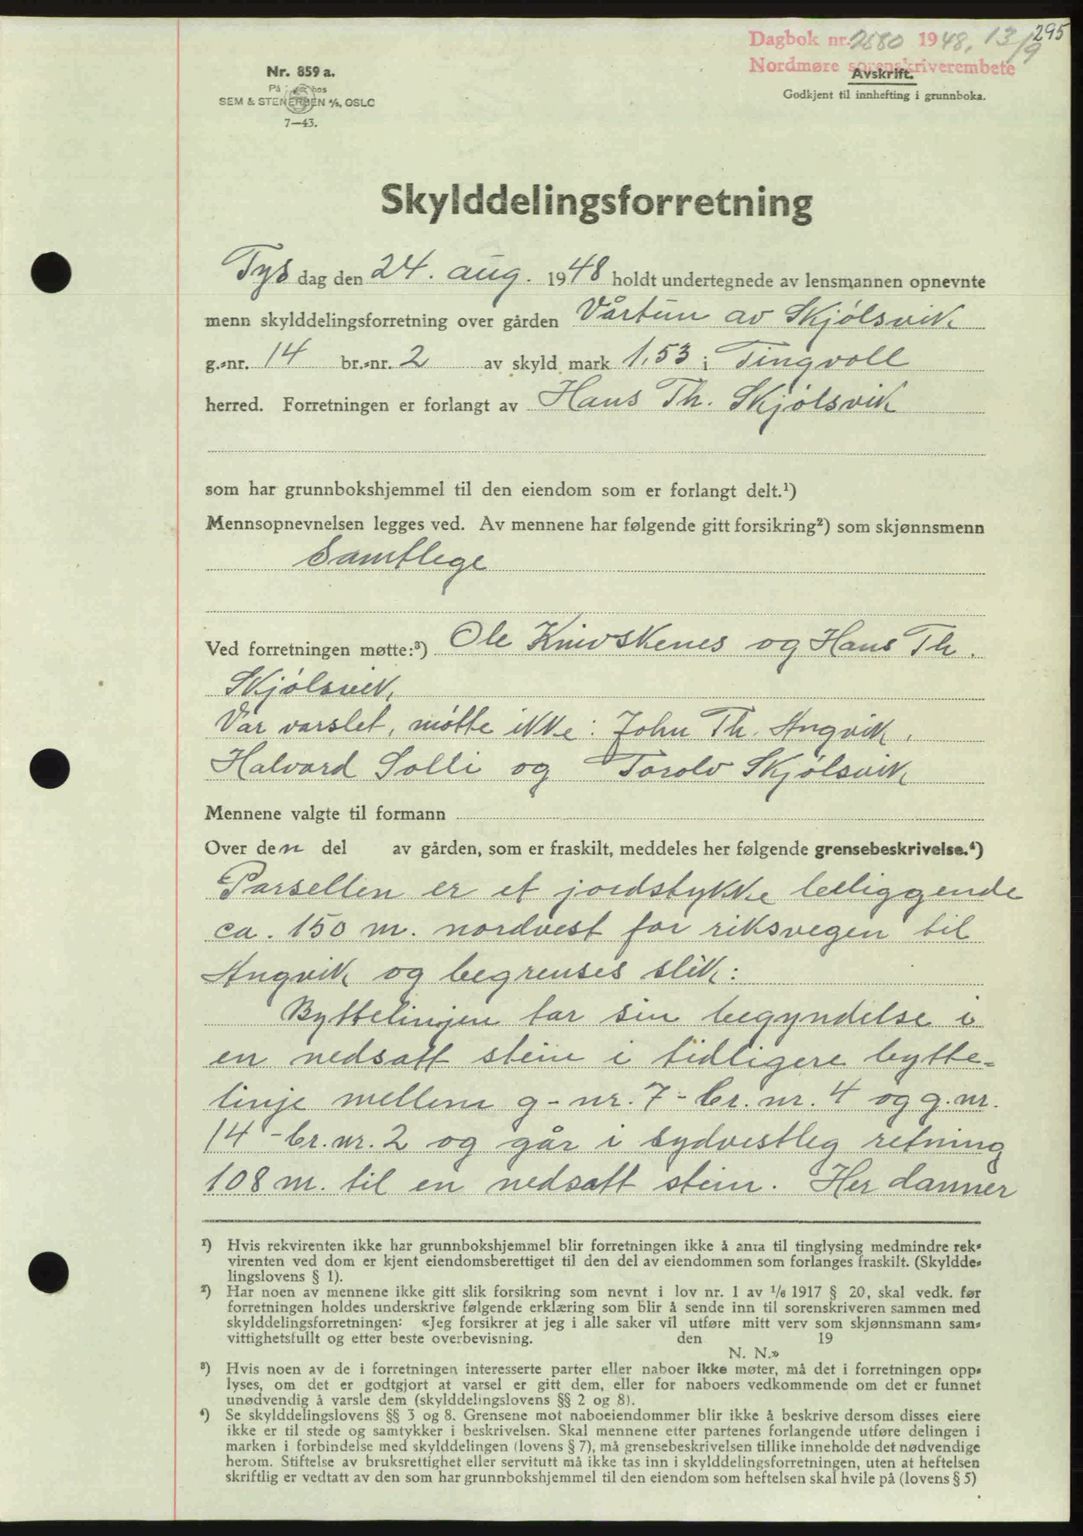 295
Dagbok nr. 2680 1948. 13/9
Nordmøre sorenskriverembete
Avskrift.
Godkjent til innhefting i grunnboka.
Nr. 859 a.
På hos
SEM & STENERSEN A/S, OSLO
7—43.
Skylddelingsforretning
Tysdag den 24. aug. 1948 holdt undertegnede av lensmannen opnevnte
menn skylddelingsforretning over gården Vårtun av Skjølsvik
g.-nr. 14 br.-nr. 2 av skyld mark 1,53 i Tingvoll
herred. Forretningen er forlangt av Hans Th. Skjølsvik
som har grunnbokshjemmel til den eiendom som er forlangt delt.¹)
Mennsopnevnelsen legges ved. Av mennene har følgende gitt forsikring²) som skjønnsmenn
Samtlege
Ved forretningen møtte:³) Ole Knivskenes og Hans Th.
Skjølsvik,
Var varslet, møtte ikke: John Th. Angvik,
Halvard Solli og Torolv Skjølsvik
Mennene valgte til formann
Over den del av gården, som er fraskilt, meddeles her følgende grensebeskrivelse.⁴)
Parsellen er et jordstykke beliggende
ca. 150 m. nordvest for riksvegen til
Angvik og begrenses slik:
Byttelinjen tar sin begyndelse i
en nedsatt stein i tidligere bytte-
linje mellem g-nr. 7-br.nr. 4 og g.nr.
14-br.nr. 2 og går i sydvestleg retning
108 m. til en nedsatt stein. Her danner
¹) Hvis rekvirenten ikke har grunnbokshjemmel blir forretningen ikke å anta til tinglysing medmindre rek-
virenten ved dom er kjent eiendomsberettiget til den del av eiendommen som forlanges fraskilt. (Skyldde-
lingslovens § 1).
²) Har noen av mennene ikke gitt slik forsikring som nevnt i lov nr. 1 av 1/6 1917 § 20, skal vedk. før
forretningen holdes underskrive følgende erklæring som blir å sende inn til sorenskriveren sammen med
skylddelingsforretningen: «Jeg forsikrer at jeg i alle saker vil utføre mitt verv som skjønnsmann sam-
vittighetsfullt og etter beste overbevisning. den 19
N. N.»
³) Hvis noen av de i forretningen interesserte parter eller naboer ikke møter, må det i forretningen opp-
lyses, om det er godtgjort at varsel er gitt dem, eller for naboers vedkommende om det er funnet
unødvendig å varsle dem (skylddelingslovens §§ 2 og 8).
⁴) Se skylddelingslovens §§ 3 og 8. Grensene mot naboeiendommer blir ikke å beskrive dersom disses eiere
ikke er til stede og samtykker i beskrivelsen. Skal mennene etter partenes forlangende utføre delingen i
marken i forbindelse med skylddelingen (lovens § 7), må grensebeskrivelsen tillike inneholde det nødvendige
herom. Stiftelse av bruksrettighet eller servitutt må ikke tas inn i skylddelingsforretningen, uten at heftelsen
skriftlig er vedtatt av den som har grunnbokshjemmel til den eiendom som heftelsen skal hvile på (lovens § 5)